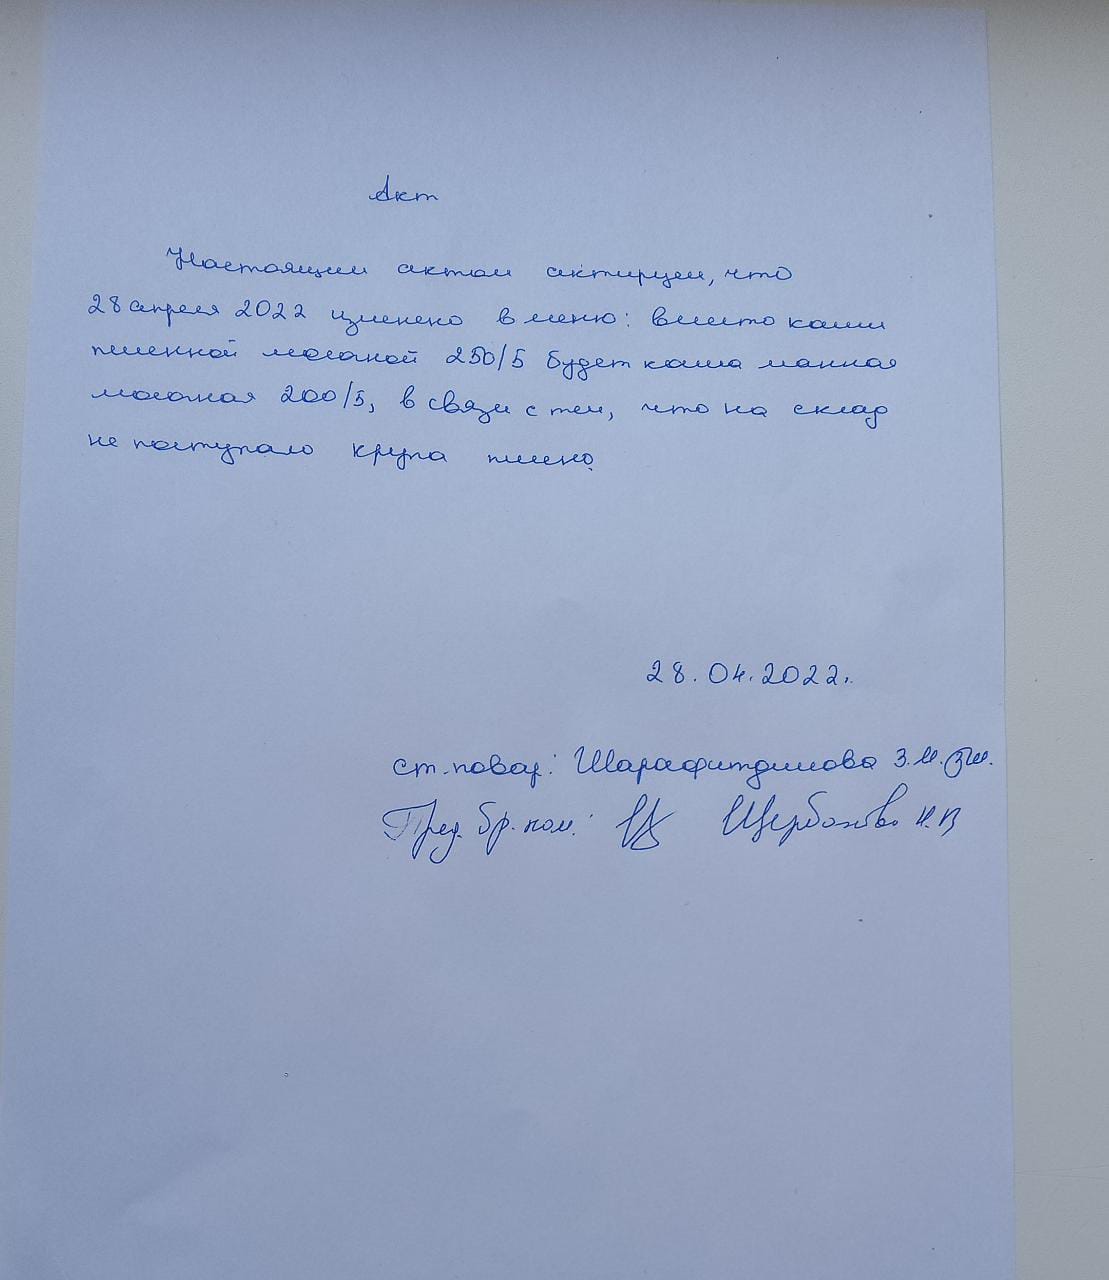 Акт
Настоящим актом актируем, что
28 апреля 2022 изменено в меню: вместо каши
пшенной молочной 250/5 будет каша манная
молочная 200/5, в связи с тем, что на склад
не поступало крупа пшено.
28.04.2022.
ст.повар: Шарафитдинова З.М.
Пред. бр. ком.: Щербакова Н.В